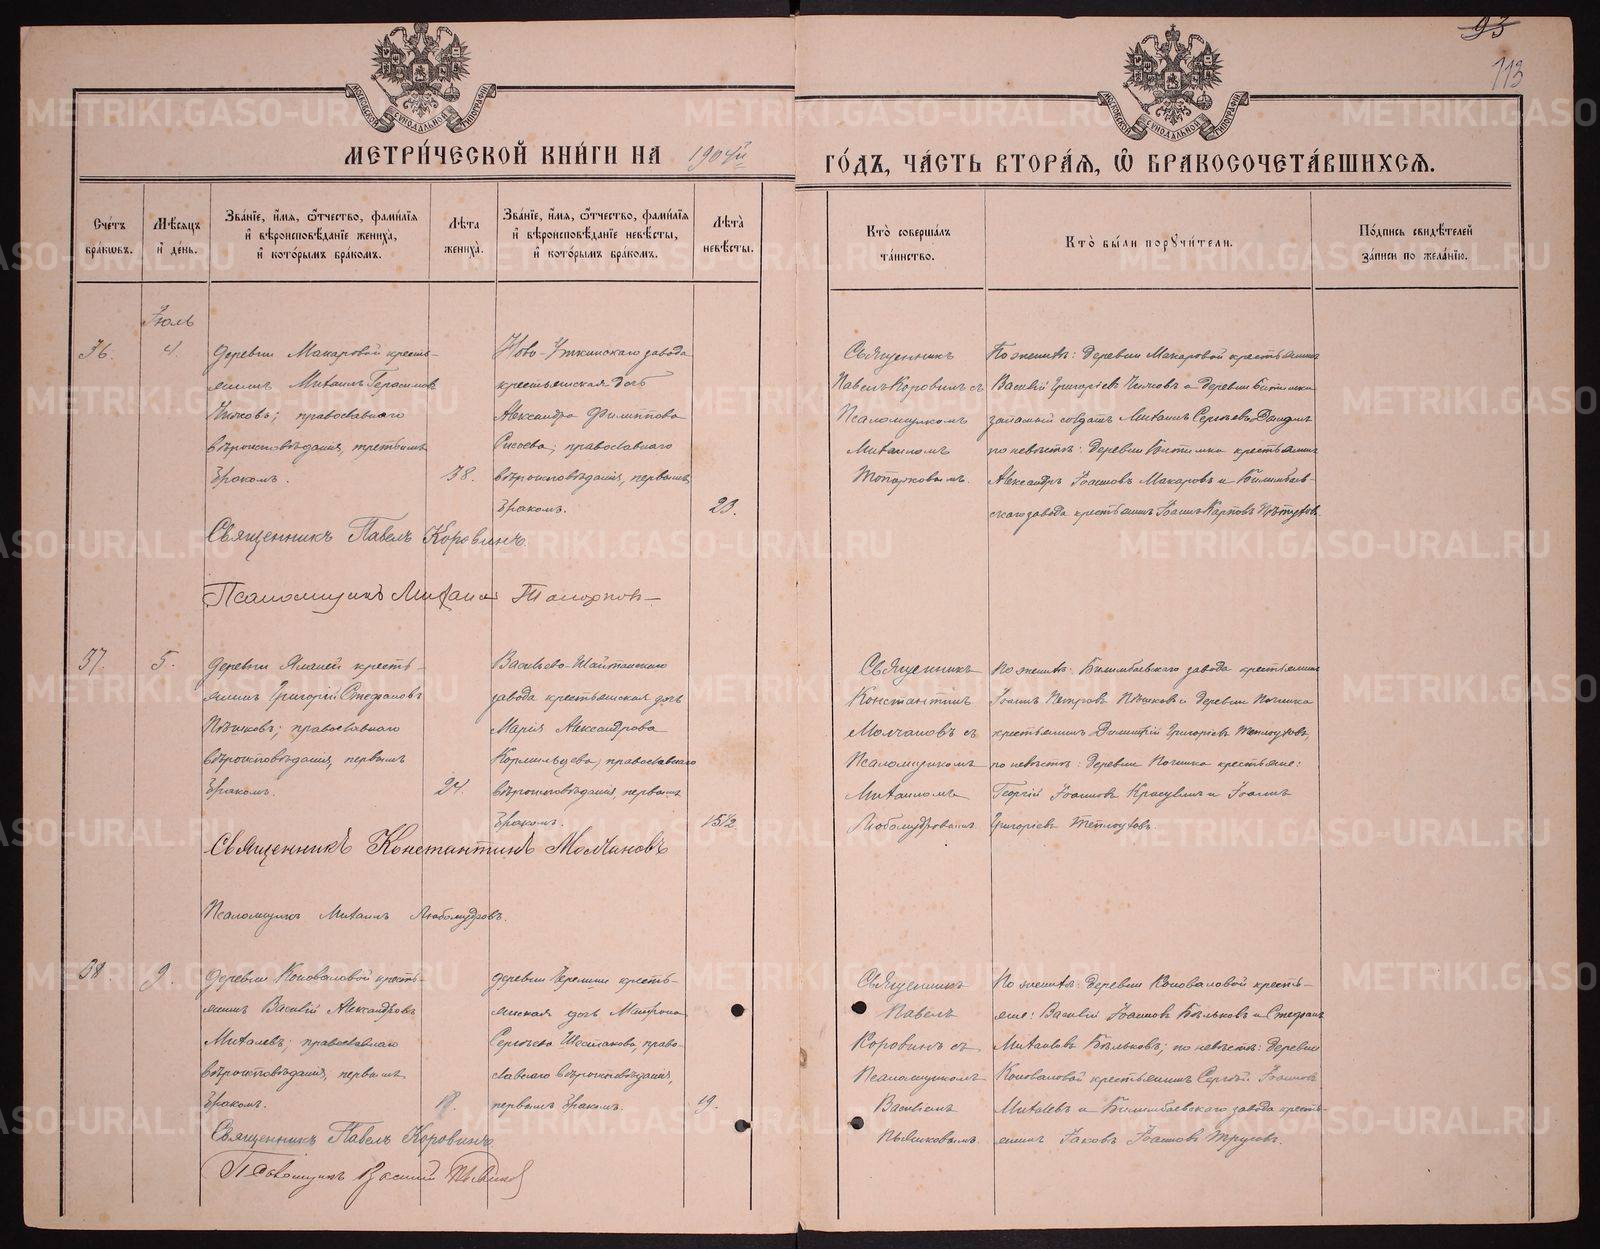 93
113
МЕТРИ́ЧЕСКОЙ КНИ́ГИ НА 1904й ГО́ДЪ, ЧА́СТЬ ВТОРА́Я, Ѿ БРАКОСОЧЕТА́ВШИХСЯ.
Сче́тъ бра́ковъ.
Мѣ́сяцъ и де́нь.
Зва́нїе, и́мя, ѻ́тчество, фами́лїя
и вѣроисповѣ́данїе жениха̀,
и кото́рымъ бра́комъ.
Лѣ́та жениха̀.
Зва́нїе, и́мя, ѻ́тчество, фами́лїя
и вѣроисповѣ́данїе невѣ́сты,
и кото́рымъ бра́комъ.
Лѣ́та невѣ́сты.
Кто̀ соверша́лъ
та́инство.
Кто̀ бы́ли порꙋчи́тели.
По́дпись свидѣ́телей
за́писи по жела́нїю.
Іюль
36.
4.
Деревни Макаровой кресть-
янинъ Михаилъ Герасимовъ
православнаго
вѣроисповѣданія, третьимъ
бракомъ.
38.
Ново-Уткинскаго завода
крестьянская дочь
Александра Филиппова
Сысоева; православнаго
вѣроисповѣданія, первымъ
бракомъ.
23.
Священникъ
Павелъ Коровинъ съ
Псаломщикомъ
Михаиломъ
Топорковымъ.
По женихѣ: Деревни Макаровой крестьянинъ
Василій Григоріевъ и деревни Битимки
запасный солдатъ Михаилъ Сергѣевъ
по невѣстѣ: Деревни Битимки крестьянинъ
Александръ Іоанновъ Макаровъ и Билимбаев-
скаго завода крестьянинъ Іоаннъ Карповъ Пѣтуховъ.
Священникъ Павелъ Коровинъ.
Псаломщикъ Михаилъ Топорковъ
37.
5.
Деревни кресть-
янинъ Григорій Стефановъ
Пѣшковъ; православнаго
вѣроисповѣданія, первымъ
бракомъ.
24.
Васильево-Шайтанскаго
завода крестьянская дочь
Марія Александрова
Кормильцева, православнаго
вѣроисповѣданія, первымъ
бракомъ.
15½
Священникъ
Константинъ
Молчановъ съ
Псаломщикомъ
Михаиломъ
Любомудровымъ.
По женихѣ: Билимбаевскаго завода крестьянинъ
Іоаннъ Петровъ Пѣшковъ и Деревни Починка
крестьянинъ Димитрій Григоріевъ Теплоуховъ,
по невѣстѣ: Деревни Починка крестьяне:
Георгій Іоанновъ и Іоаннъ
Григоріевъ Теплоуховъ.
Священникъ Константинъ Молчановъ
Псаломщикъ Михаилъ Любомудровъ.
38
9.
Деревни Коноваловой кресть-
янинъ Василій Александровъ
Михалевъ; православнаго
вѣроисповѣданія, первымъ
бракомъ.
деревни Черемши кресть-
янская дочь Матрона
Сергѣева Шестакова, право-
славнаго вѣроисповѣданія,
первымъ бракомъ.
19.
Священникъ
Павелъ
Коровинъ съ
Псаломщикомъ
Василіемъ
Пьянковымъ.
По женихѣ: Деревни Коноваловой кресть-
яне: Василій Іоанновъ Бѣльковъ и Стефанъ
Михаиловъ Бѣльковъ; по невѣстѣ: Деревни
Коноваловой крестьянинъ Сергѣй Іоанновъ
Михалевъ и Билимбаевскаго завода кресть-
янинъ Іаковъ Іоанновъ Трусовъ.
Священникъ Павелъ Коровинъ.
Псаломщикъ Василій Пьянковъ
METRIKI.GASO-URAL.RU